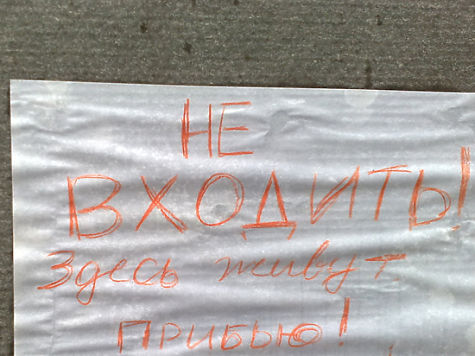 НЕ
ВХОДИТЬ!
Здесь живут
ПРИБЬЮ!